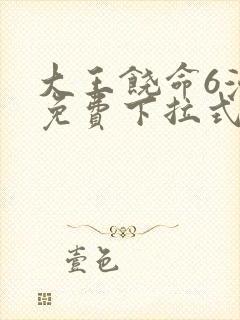 大王饶命6
免费下拉式
壹色